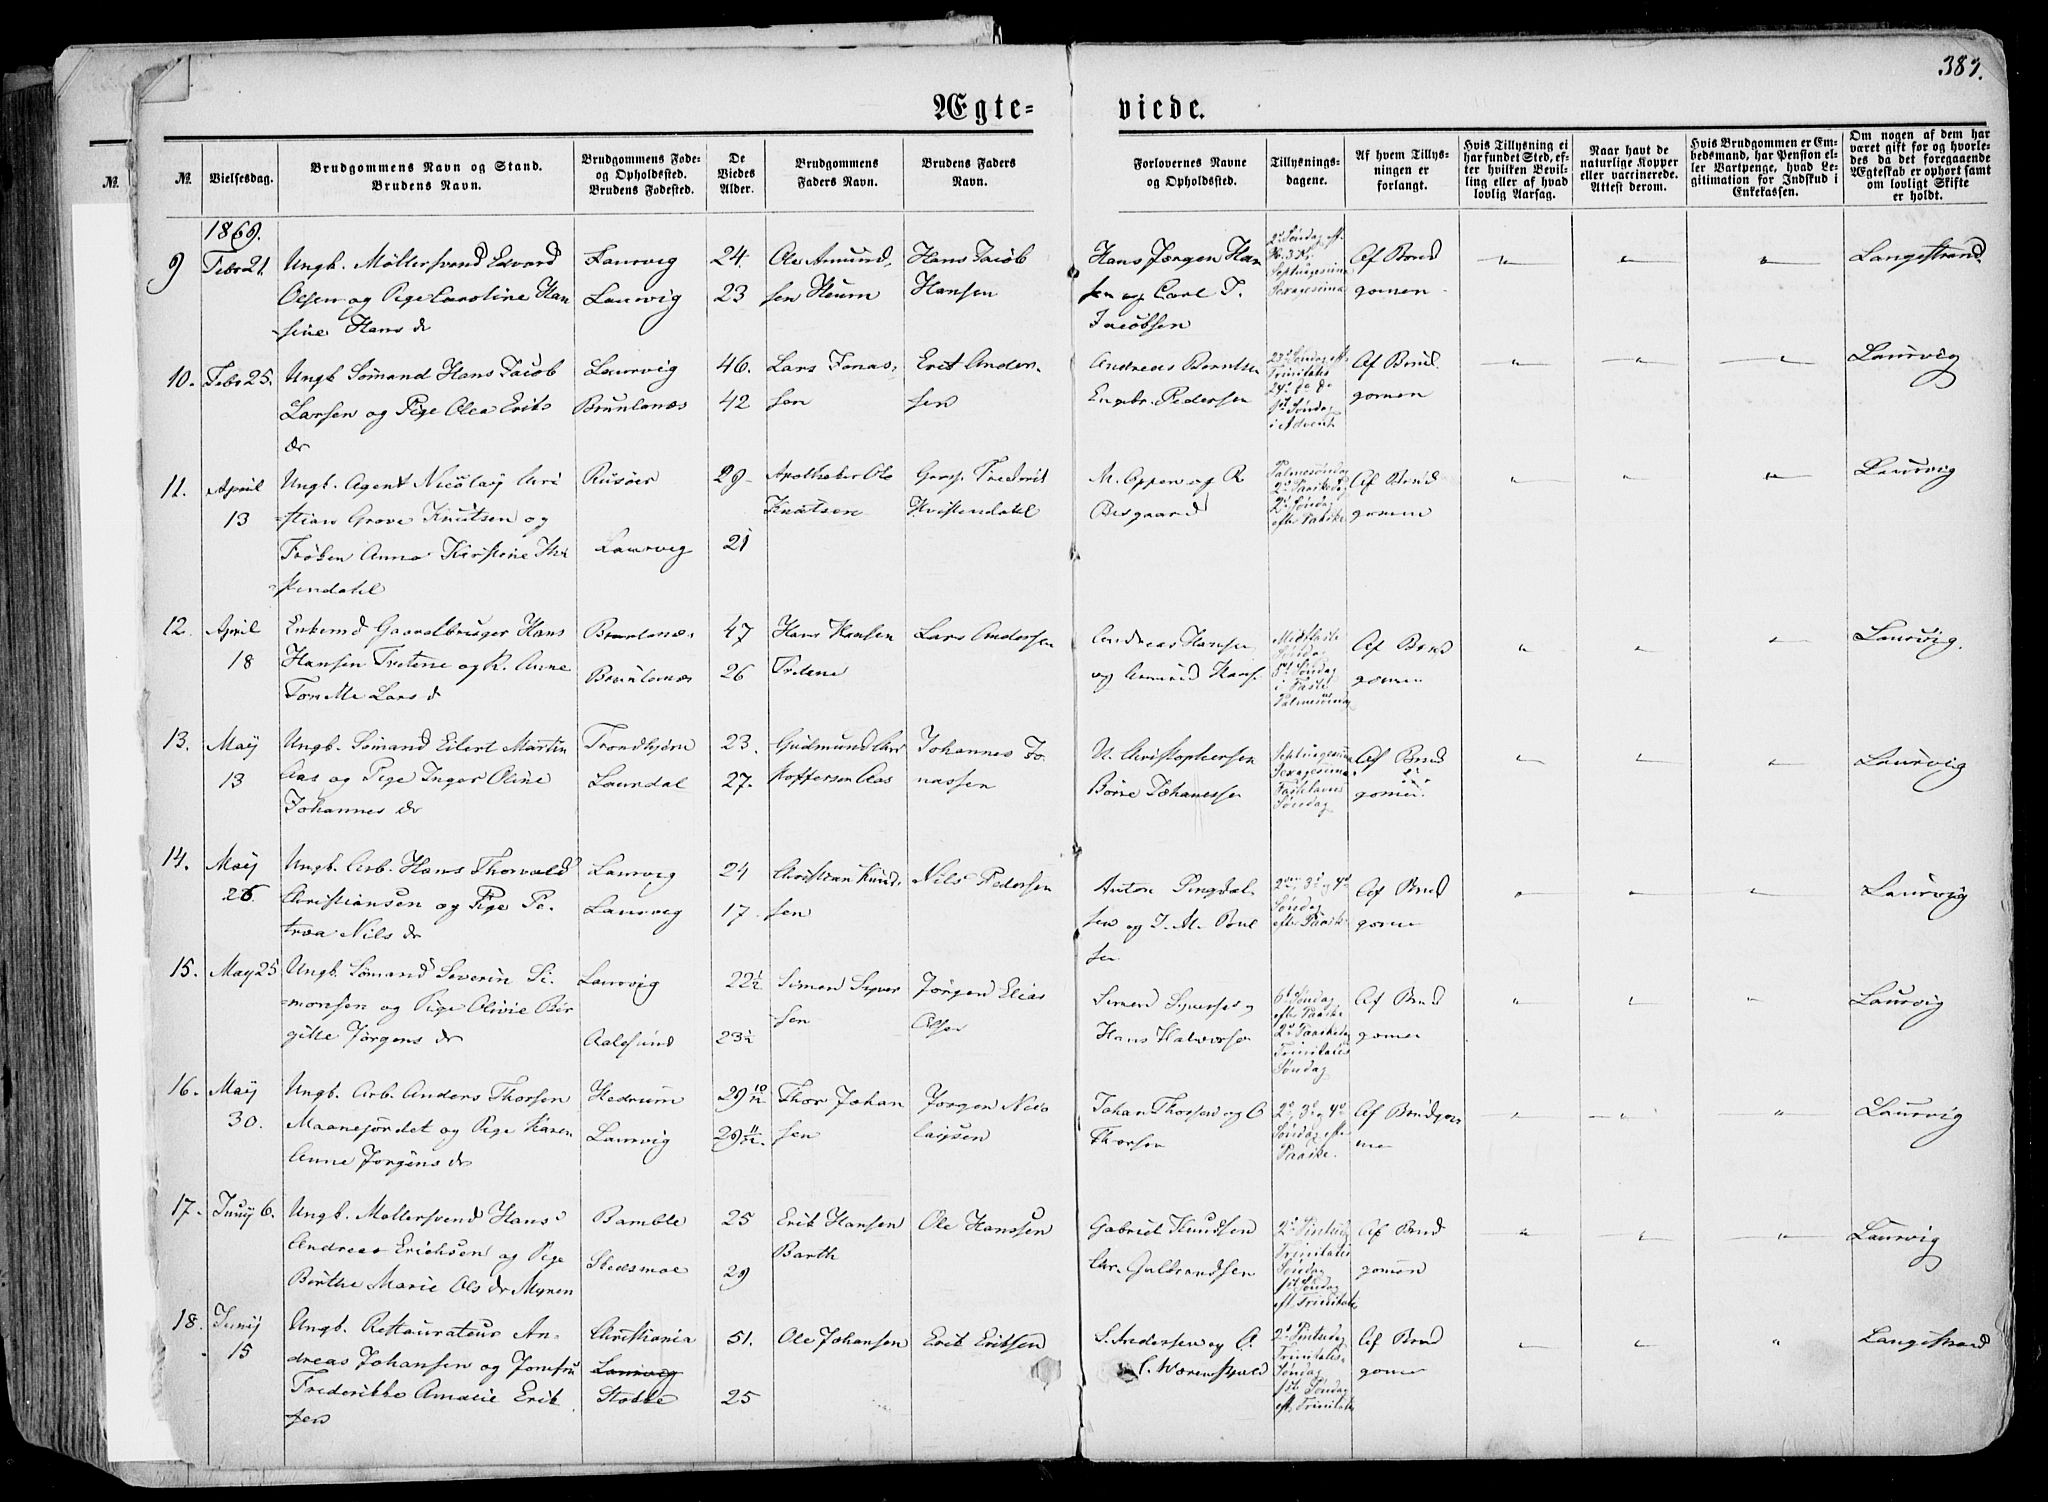 387.
Ægte=
viede.
№.
№.
Vielsesdag.
Brudgommens Navn og Stand.
Brudens Navn.
Brudgommens Føde-
og Opholdssted.
Brudens Fødested.
De
Viedes
Alder.
Brudgommens
Faders Navn.
Brudens Faders
Navn.
Forlovernes Navne
og Opholdssted.
Tillysnings-
dagene.
Af hvem Tillys-
ningen er
forlangt.
Hvis Tillysning ei
har fundet Sted, ef-
ter hvilken Bevil-
ling eller af hvad
lovlig Aarsag.
Naar havt de
naturlige Kopper
eller vaccinerede.
Attest derom.
Hvis Brudgommen er Em-
bedsmand, har Pension el-
ler Vartpenge, hvad Le-
gitimation for Indskud i
Enkekassen.
Om nogen af dem har
været gift før og hvorle-
des da det foregaaende
Ægteskab er ophørt samt
om lovligt Skifte
er holdt.
1869.
9
Febr 21.
Ungk. Møllersvend Edvard
Olsen og Pige Caroline Han
sine Hans dr
Laurvig
Laurvig
24.
23
Ole Amund-
sen Heum
Hans Jacob
Hansen
Hans Jørgen Han
sen og Carl T.
Jacobsen
Septuagesima
Sexagesima
Af Brud
gomen
Langestrand
10.
Febr 25.
Ungk Sømand Hans Jacob
Larsen og Pige Olea Eriks
dr
Laurvig
Brunlanæs
46.
42
Lars Jonas-
sen
Erik Ander-
sen
Andreas Berntsen
Engbr. Pedersen
23d Søndag eft.
Trinitatis
24d do do
1st Søndag
i Advent
Af Brud
gomen
Laurvig
11.
April
13
Ungk. Agent Nicolay Chri
stian Grove Knutsen og
Frøken Anna Kirstine Hvi
stendahl
Risøer
Laurvig
29
21
Apotheker Ole
Knutsen
Gros. Frederik
Hvistendahl
M. Oppen og R
Bisgaard
Palmesøndag
2d Paaskedag
2d Søndag
eft. Paaske
Af Brud
gomen
Laurvig
12.
April
18
Enkemd Gaardbruger Hans
Hansen Tretene og P. Anne
Tomille Lars dr
Brunlanæs
Brunlanæs
47
26
Hans Hansen
Tretene
Lars Andersen
Andreas Hansen
og Amund Hans.
Midfaste
Søndag
5t Søndag
i Faste
Palmesøndag
Af Brud
gomen
Laurvig.
13.
May
13
Ungk. Sømand Eilert Martin
Aas og Pige Inger Oline
Johannes dr
Trondhjem
Laurdal
23.
27.
Gudmund Chri
stoffersen Aas
Johannes Jo
nassen
N. Christophersen
Børre Johanessen
Septuagesima
Sexagesima
Fastelavns
Søndag
Af Brud
gomen.
Laurvig
14.
May
26.
Ungk. Arb. Hans Thorvald
Christiansen og Pige Pe-
traa Nils dr
Laurvig
Laurvig
24
17.
Christian Knud-
sen
Nils Pedersen
Anton Ringdal
sen og J. M. Poul
sen.
2den, 3d og 4d
Søndag
eft. Paaske
Af Brud
gomen
Laurvig
15.
May 25
Ungk. Sømand Severin Si-
monsen og Pige Olivie Bir
gitte Jørgens dr
Laurvig
Aalesund
22½
23½
Simen Syver
sen
Jørgen Elias
Olsen
Simen Syversen og
Hans Halvorsen
6t Søndag
eft. Paaske
Trinitatis
Søndag
Af Brud
gomen
Laurvig
16.
May
30.
Ungk. Arb. Anders Thorsen
Maanejordet og Pige Karen
Anne Jørgens dr
Hedrum
Laurvig
29 10/12
29 11/12.
Thor Johan
sen
Jørgen Nico
laysen
Johan Thorsen og O
Thorsen
2d, 3d og 4d
Søndag eft.
Paaske.
Af Brudgom
men
Laurvig
17.
Juny 6.
Ungk. Møllersvend Hans
Andreas Erichsen og Pige
Berthe Marie Ols dr Myren
Bamble
Skedsmoe
25
29
Erik Hansen
Barth
Ole Hanssen
Gabriel Knudsen
Chr. Gulbrandsen
2d Pintsedag
Trinitatis
Søndag
1st Søndag
eft. Trinitatis
Af Brud
gomen
Laurvig
18.
Juny
15
Ungk. Restaurateur An-
dreas Johansen og Jomfru
Frederikke Amalie Erik
sen
Christiania
Laurvig
Stokke
51.
25
Ole Johansen
Erik Eriksen
S. Andersen og O.
C. Wærenskjold
2d Pintsedag
Trinitatis
Søndag
1st Søndag
eft. Trinitatis
Af Brud
gomen
Langestrand